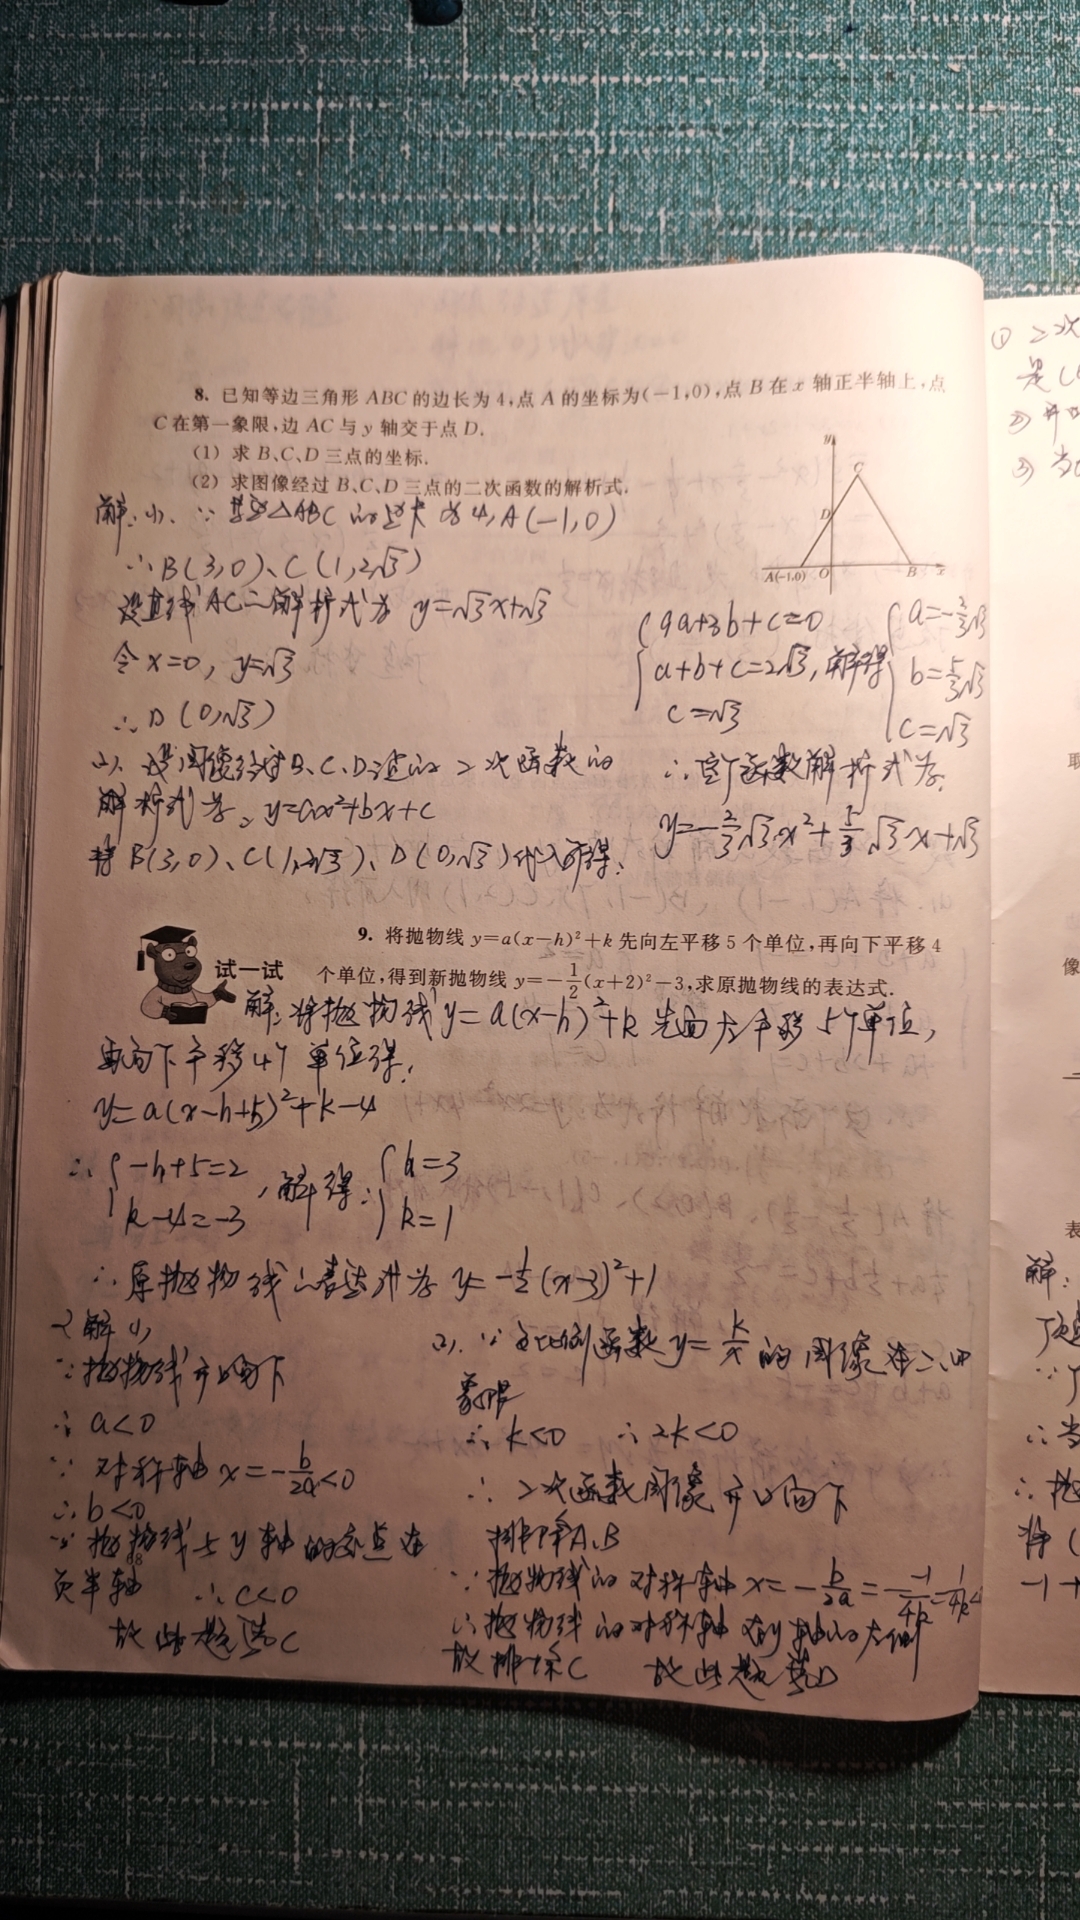 8. 已知等边三角形 ABC 的边长为 4,点 A 的坐标为(-1,0),点 B 在 x 轴正半轴上,点
C 在第一象限,边 AC 与 y 轴交于点 D.
(1) 求 B、C、D 三点的坐标.
(2) 求图像经过 B、C、D 三点的二次函数的解析式.
y
C
D
A(-1,0) O B x
解:(1). ∵ 等边△ABC 的边长为4,A(-1,0)
∴B(3,0)、C(1,2√3)
设直线AC的解析式为 y=√3x+√3
令 x=0, y=√3
∴D(0,√3)
(2). 设图像经过B、C、D三点的二次函数的
解析式为: y=ax²+bx+c
将B(3,0)、C(1,2√3)、D(0,√3)代入可得:
{9a+3b+c=0
a+b+c=2√3, 解得 {a=-2/3√3
c=√3
b=5/3√3
c=√3
∴这个函数解析式为:
y=-2/3√3x²+5/3√3x+√3
试一试
9. 将抛物线 y=a(x-h)²+k 先向左平移 5 个单位,再向下平移 4
个单位,得到新抛物线 y=-1/2(x+2)²-3,求原抛物线的表达式.
解:将抛物线y=a(x-h)²+k 先向左平移5个单位,
再向下平移4个单位得:
y=a(x-h+5)²+k-4
∴{-h+5=2
k-4=-3
,解得:{h=3
k=1
∴原抛物线的表达式为 y=-1/2(x-3)²+1
解(1)
∵抛物线开口向下
∴a<0
∵对称轴x=-b/2a<0
∴b<0
∵抛物线与y轴的交点在
负半轴 ∴c<0
故此题选C
68
(2). ∵反比例函数y=k/x的图像在二、四
象限
∴k<0 ∴2k<0
∴二次函数图像开口向下
排除A、B
∵抛物线的对称轴x=-b/2a=-(-1)/4k=1/4k<
∴抛物线的对称轴在y轴的左侧
故排除C 故此题选D
① 二次
②
③ 当
像
表
解:
顶
∵
∴当
∴抛
将(
-1+